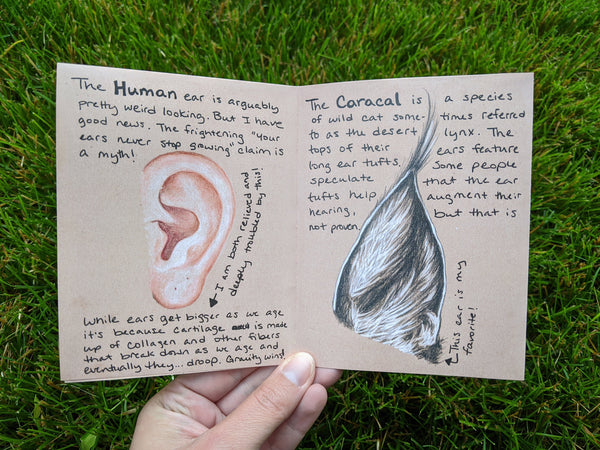 The Human ear is arguably
pretty weird looking. But I have
good news. The frightening "your
ears never stop growing" claim is
a myth!
I am both relieved and
deeply troubled by this!
While ears get bigger as we age
it's because cartilage is made
up of collagen and other fibers
that break down as we age and
eventually they... droop. Gravity wins!
The Caracal is a species
of wild cat some- times referred
to as the desert lynx. The
tops of their ears feature
long ear tufts. Some people
speculate that the ear
tufts help augment their
hearing, but that is
not proven.
This ear is my
favorite!